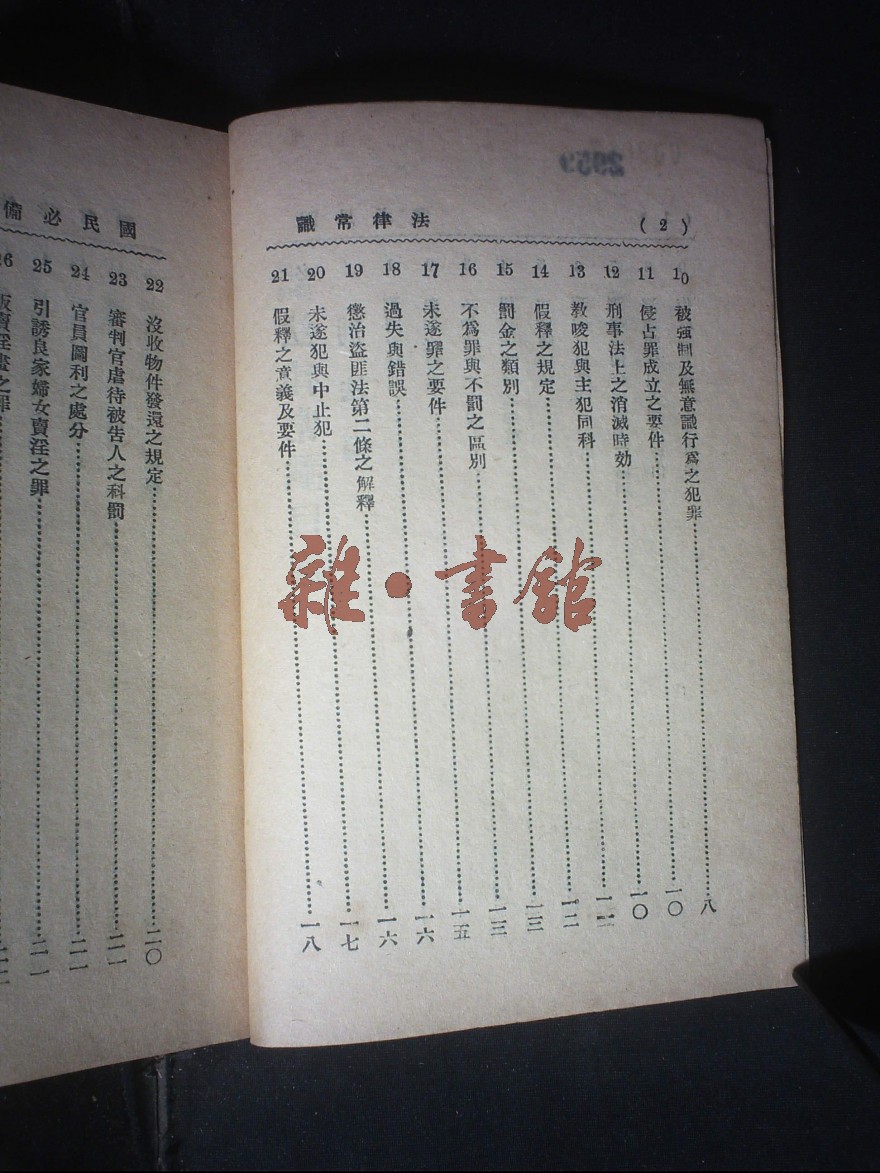 (2)
法律常識
10 被強制及無意識行爲之犯罪……八
11 侵占罪成立之要件……一〇
12 刑事法上之消滅時効……一〇
13 教唆犯與主犯同科……一二
14 假釋之規定……一二
15 罰金之類別……一三
16 不爲罪與不罰之區別……一三
17 未遂罪之要件……一五
18 過失與錯誤……一六
19 懲治盜匪法第二條之解釋……一六
20 未遂犯與中止犯……一七
21 假釋之意義及要件……一八
國民必備
22 沒收物件發還之規定……二〇
23 審判官虐待被告人之科罰……二一
24 官員圖利之處分……二一
25 引誘良家婦女賣淫之罪……二一
26 販賣淫畫之罪
雜·書館